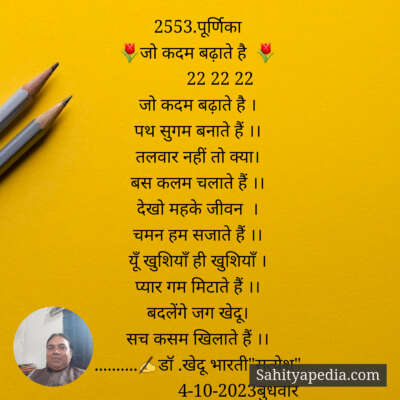 2553.पूर्णिका
🌷जो कदम बढ़ाते है 🌷
22 22 22
जो कदम बढ़ाते है ।
पथ सुगम बनाते हैं ।।
तलवार नहीं तो क्या।
बस कलम चलाते हैं ।।
देखो महके जीवन ।
चमन हम सजाते हैं ।।
यूँ खुशियाँ ही खुशियाँ ।
प्यार गम मिटाते हैं ।।
बदलेंगे जग खेदू।
सच कसम खिलाते हैं ।।
..........✍डॉ .खेदू भारती
Sahityapedia.com
4-10-2023बुधवार